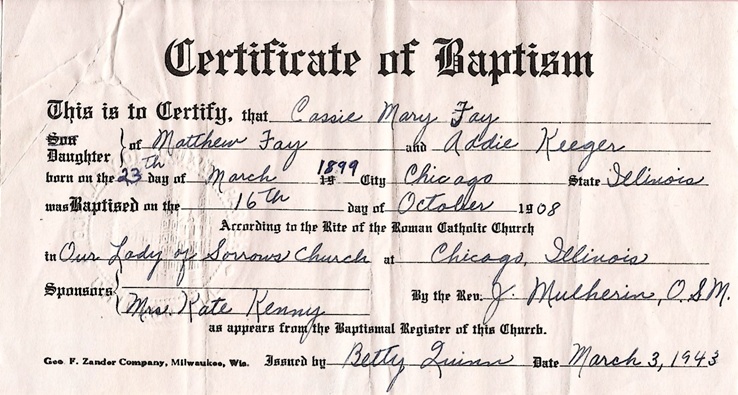 Certificate of Baptism
This is to Certify, that Cassie Mary Fay
Son
Daughter } of Matthew Fay and Addie Keeger
born on the 23th day of March 19 1899 City Chicago State Illinois
was Baptised on the 16th day of October 1908
According to the Rite of the Roman Catholic Church
in Our Lady of Sorrows Church at Chicago, Illinois
Sponsors { Mrs. Kate Kenny By the Rev. J. Mulherin, O.S.M.
as appears from the Baptismal Register of this Church.
Geo. F. Zander Company, Milwaukee, Wis. Issued by Betty Quinn Date March 3, 1943